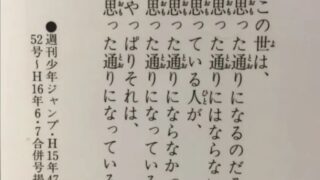 この世は、
思った通りになるのだ
思った通りにはならな
思っている人が、
思った通りにならなかっ
思った通りになってい
やっぱりそれは、
思った通りになっている
●週刊少年ジャンプ・H15年47
52号〜H16年6・7合併号掲